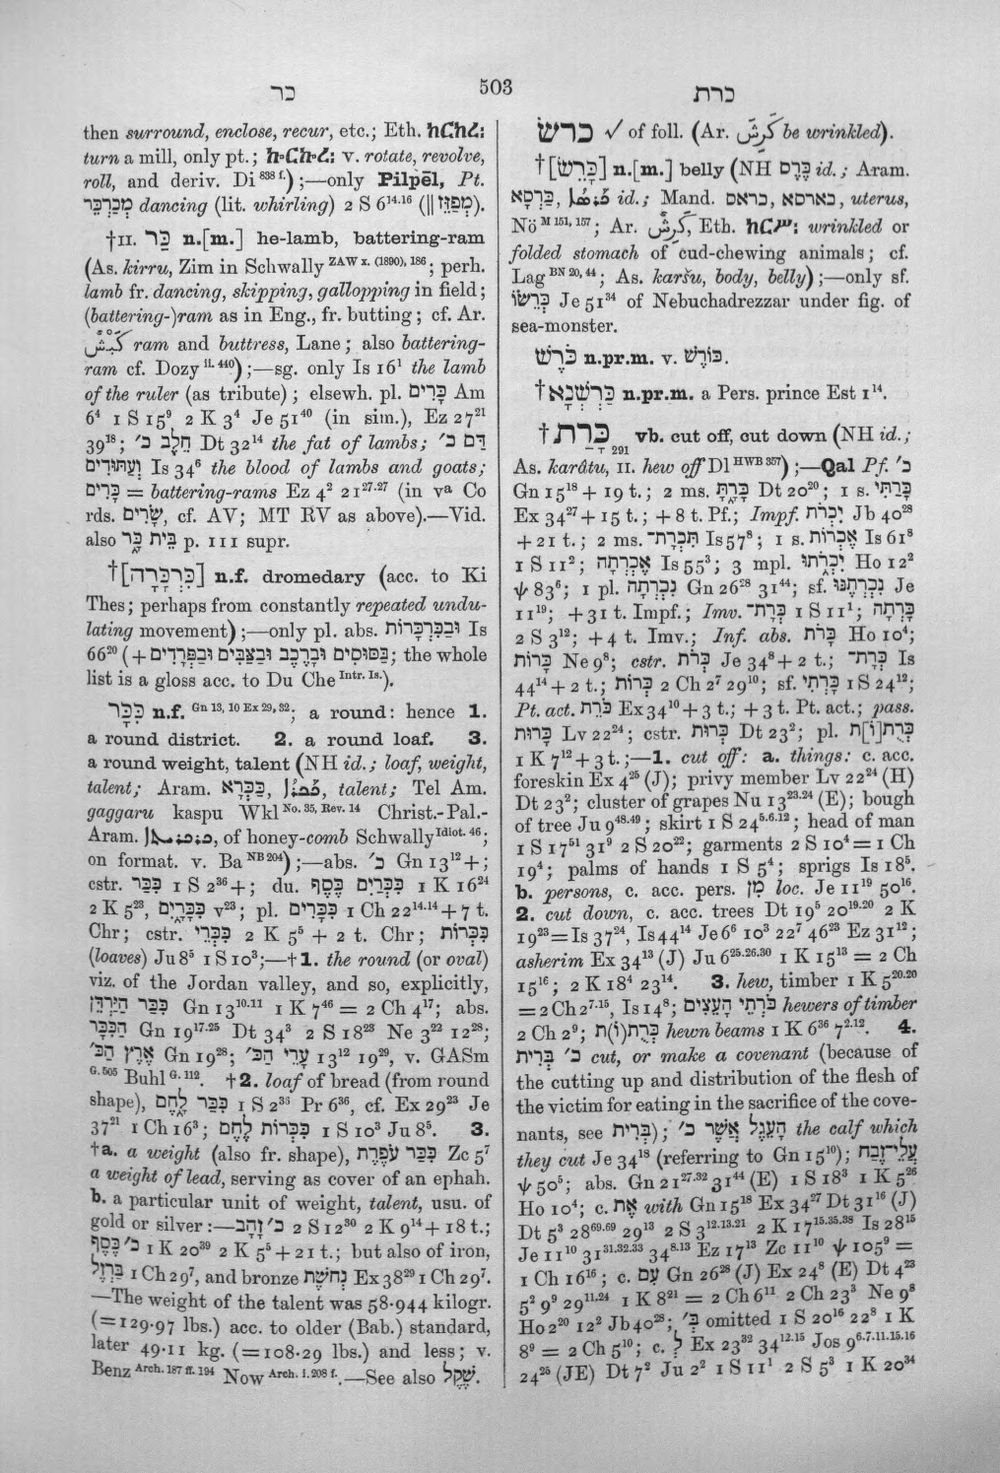 כר
503
כרת
then surround, enclose, recur, etc.; Eth.
turn a mill, only pt.; v. rotate, revolve,
roll, and deriv. Di 838 f.) ;—only Pilpēl, Pt.
מְכַרְכֵּר dancing (lit. whirling) 2 S 6 14.16 (|| מְפַזֵּז).
†II. כַּר n.[m.] he-lamb, battering-ram
(As. kirru, Zim in Schwally ZAW x. (1890), 186; perh.
lamb fr. dancing, skipping, gallopping in field;
(battering-)ram as in Eng., fr. butting; cf. Ar.
ram and buttress, Lane; also battering-
ram cf. Dozy ii. 440) ;—sg. only Is 16 1 the lamb
of the ruler (as tribute); elsewh. pl. כָּרִים Am
6 4 1 S 15 9 2 K 3 4 Je 51 40 (in sim.), Ez 27 21
39 18; חֵלֶב כ׳ Dt 32 14 the fat of lambs; דַּם כ׳
וְעַתּוּדִים Is 34 6 the blood of lambs and goats;
כָּרִים = battering-rams Ez 4 2 21 27.27 (in v a Co
rds. שָׂרִים, cf. AV; MT RV as above).—Vid.
also בֵּית כָּר p. 111 supr.
†[כִּרְכָּרָה] n.f. dromedary (acc. to Ki
Thes; perhaps from constantly repeated undu-
lating movement) ;—only pl. abs. וּבַכִּרְכָּרוֹת Is
66 20 (+ בַּסּוּסִים וּבָרֶכֶב וּבַצַּבִּים וּבַפְּרָדִים; the whole
list is a gloss acc. to Du Che Intr. Is.).
כִּכָּר n.f. Gn 13, 10 Ex 29, 32; a round: hence 1.
a round district. 2. a round loaf. 3.
a round weight, talent (NH id.; loaf, weight,
talent; Aram. כַּכְּרָא, talent; Tel Am.
gaggaru kaspu Wkl No. 35, Rev. 14 Christ.-Pal.-
Aram. of honey-comb Schwally Idiot. 46;
on format. v. Ba NB 204) ;—abs. כ׳ Gn 13 12 +;
cstr. כִּכַּר 1 S 2 36 +; du. כִּכְּרַיִם כֶּסֶף 1 K 16 24
2 K 5 23, כִּכָּרָיִם v 23; pl. כִּכָּרִים 1 Ch 22 14.14 + 7 t.
Chr; cstr. כִּכְּרֵי 2 K 5 5 + 2 t. Chr; כִּכְּרוֹת
(loaves) Ju 8 5 1 S 10 3;—†1. the round (or oval)
viz. of the Jordan valley, and so, explicitly,
כִּכַּר הַיַּרְדֵּן Gn 13 10.11 1 K 7 46 = 2 Ch 4 17; abs.
הַכִּכָּר Gn 19 17.25 Dt 34 3 2 S 18 23 Ne 3 22 12 28;
אֶרֶץ הַכּ׳ Gn 19 28; עָרֵי הַכּ׳ 13 12 19 29, v. GASm
G. 505 Buhl G. 112. †2. loaf of bread (from round
shape), כִּכַּר לֶחֶם 1 S 2 36 Pr 6 36, cf. Ex 29 23 Je
37 21 1 Ch 16 3; כִּכְּרוֹת לֶחֶם 1 S 10 3 Ju 8 5. 3.
†a. a weight (also fr. shape), כִּכַּר עֹפֶרֶת Zc 5 7
a weight of lead, serving as cover of an ephah.
b. a particular unit of weight, talent, usu. of
gold or silver:—כ׳ זָהָב 2 S 12 30 2 K 9 14 + 18 t.;
כ׳ כֶּסֶף 1 K 20 39 2 K 5 5 + 21 t.; but also of iron,
בַּרְזֶל 1 Ch 29 7, and bronze נְחֹשֶׁת Ex 38 29 1 Ch 29 7.
—The weight of the talent was 58·944 kilogr.
(= 129·97 lbs.) acc. to older (Bab.) standard,
later 49·11 kg. (= 108·29 lbs.) and less; v.
Benz Arch. 187 ff. 194 Now Arch. I. 208 f.—See also שֶׁקֶל.
כרשׂ √ of foll. (Ar. be wrinkled).
†[כָּרֵשׂ] n.[m.] belly (NH כָּרֵס id.; Aram.
כַּרְסָא, id.; Mand. כארסא, כראס, uterus,
Nö M 151, 157; Ar. Eth. wrinkled or
folded stomach of cud-chewing animals; cf.
Lag BN 20, 44; As. karšu, body, belly) ;—only sf.
כְּרֵשׂוֹ Je 51 34 of Nebuchadrezzar under fig. of
sea-monster.
כֹּרֶשׁ n.pr.m. v. כּוֹרֶשׁ.
†כַּרְשְׁנָא n.pr.m. a Pers. prince Est 1 14.
†כָּרַת 291 vb. cut off, cut down (NH id.;
As. karâtu, II. hew off Dl HWB 357) ;—Qal Pf. כ׳
Gn 15 18 + 19 t.; 2 ms. כָּרַתָּ Dt 20 20; 1 s. כָּרַתִּי
Ex 34 27 + 15 t.; + 8 t. Pf.; Impf. יִכְרֹת Jb 40 28
+ 21 t.; 2 ms. תִּכְרָת־ Is 57 8; 1 s. אֶכְרוֹת Is 61 8
1 S 11 2; אֶכְרְתָה Is 55 3; 3 mpl. יִכְרְתוּ Ho 12 2
ψ 83 6; 1 pl. נִכְרְתָה Gn 26 28 31 44; sf. נִכְרְתֶנּוּ Je
11 19; + 31 t. Impf.; Imv. כְּרָת־ 1 S 11 1; כָּרְתָה
2 S 3 12; + 4 t. Imv.; Inf. abs. כָּרֹת Ho 10 4;
כָּרוֹת Ne 9 8; cstr. כְּרֹת Je 34 8 + 2 t.; כְּרָת־ Is
44 14 + 2 t.; כְּרוֹת 2 Ch 2 7 29 10; sf. כָּרְתִי 1 S 24 12;
Pt. act. כֹּרֵת Ex 34 10 + 3 t.; + 3 t. Pt. act.; pass.
כָּרוּת Lv 22 24; cstr. כְּרוּת Dt 23 2; pl. כְּרֻת[וֹ]ת
1 K 7 12 + 3 t. ;—1. cut off: a. things: c. acc.
foreskin Ex 4 25 (J); privy member Lv 22 24 (H)
Dt 23 2; cluster of grapes Nu 13 23.24 (E); bough
of tree Ju 9 48.49; skirt 1 S 24 5.6.12; head of man
1 S 17 51 31 9 2 S 20 22; garments 2 S 10 4 = 1 Ch
19 4; palms of hands 1 S 5 4; sprigs Is 18 5.
b. persons, c. acc. pers. מִן loc. Je 11 19 50 16.
2. cut down, c. acc. trees Dt 19 5 20 19.20 2 K
19 23 = Is 37 24, Is 44 14 Je 6 6 10 3 22 7 46 23 Ez 31 12;
asherim Ex 34 13 (J) Ju 6 25.26.30 1 K 15 13 = 2 Ch
15 16; 2 K 18 4 23 14. 3. hew, timber 1 K 5 20.20
= 2 Ch 2 7.15, Is 14 8; כֹּרְתֵי הָעֵצִים hewers of timber
2 Ch 2 9; כְּרֻת(וֹ)ת hewn beams 1 K 6 36 7 2.12. 4.
כ׳ בְּרִית cut, or make a covenant (because of
the cutting up and distribution of the flesh of
the victim for eating in the sacrifice of the cove-
nants, see בְּרִית); הָעֵגֶל אֲשֶׁר כ׳ the calf which
they cut Je 34 18 (referring to Gn 15 10); עֲלֵי־זָבַח
ψ 50 5; abs. Gn 21 27.32 31 44 (E) 1 S 18 3 1 K 5 26
Ho 10 4; c. אֶת with Gn 15 18 Ex 34 27 Dt 31 16 (J)
Dt 5 3 28 69.69 29 13 2 S 3 12.13.21 2 K 17 15.35.38 Is 28 15
Je 11 10 31 31.32.33 34 8.13 Ez 17 13 Zc 11 10 ψ 105 9 =
1 Ch 16 16; c. עִם Gn 26 28 (J) Ex 24 8 (E) Dt 4 23
5 2 9 9 29 11.24 1 K 8 21 = 2 Ch 6 11 2 Ch 23 3 Ne 9 8
Ho 2 20 12 2 Jb 40 28; בְּ׳ omitted 1 S 20 16 22 8 1 K
8 9 = 2 Ch 5 10; c. לְ Ex 23 32 34 12.15 Jos 9 6.7.11.15.16
24 25 (JE) Dt 7 2 Ju 2 2 1 S 11 1 2 S 5 3 1 K 20 34